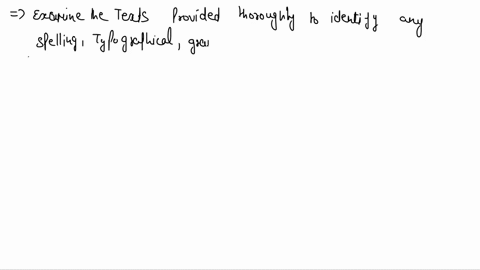 => Examine the Texts Provided thoroughly to identify any
spelling, Typographical, gra